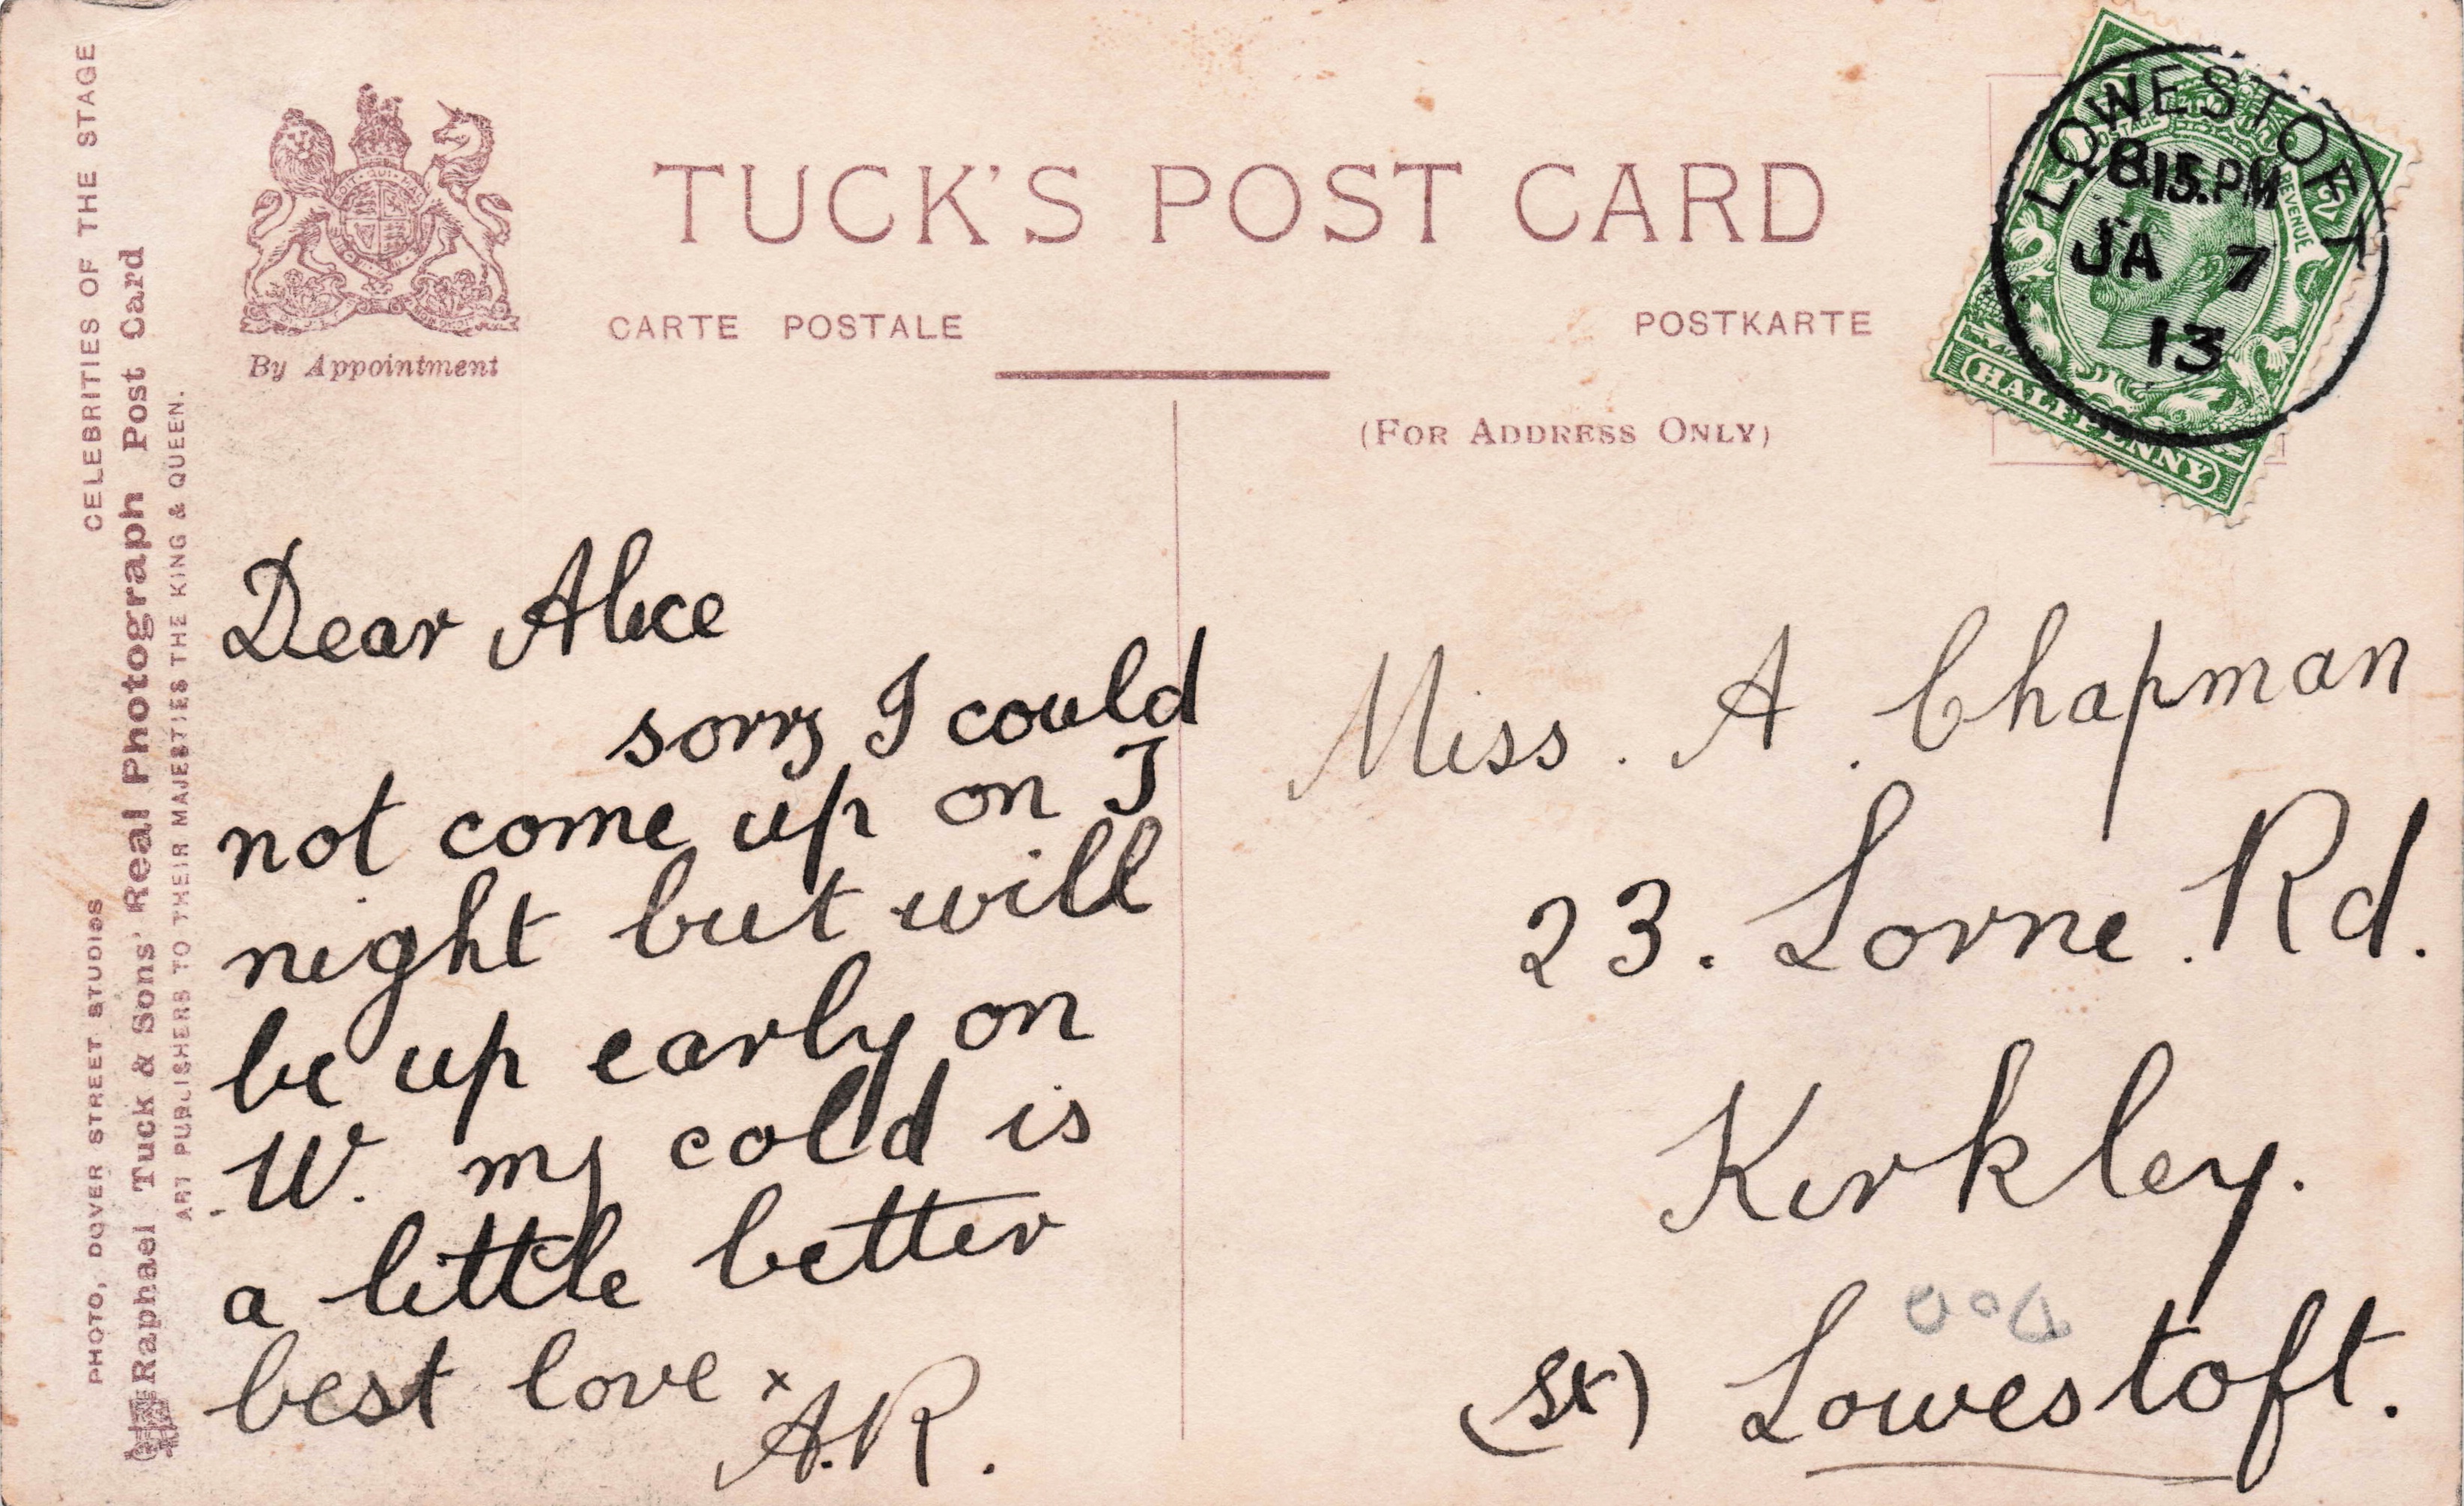 TUCK'S POST CARD
CARTE POSTALE
POSTKARTE
By Appointment
(FOR ADDRESS ONLY)
LOWESTOFT
8.15.PM
JA 7
13
POSTAGE
REVENUE
HALFPENNY
CELEBRITIES OF THE STAGE
PHOTO, DOVER STREET STUDIOS
Raphael Tuck & Sons' Real Photograph Post Card
ART PUBLISHERS TO THEIR MAJESTIES THE KING & QUEEN.
Dear Alice
sorry I could
not come up on T
night but will
be up early on
W. my cold is
a little better
best love x
A.R.
Miss. A. Chapman
23. Lorne. Rd.
Kirkley.
Lowestoft.